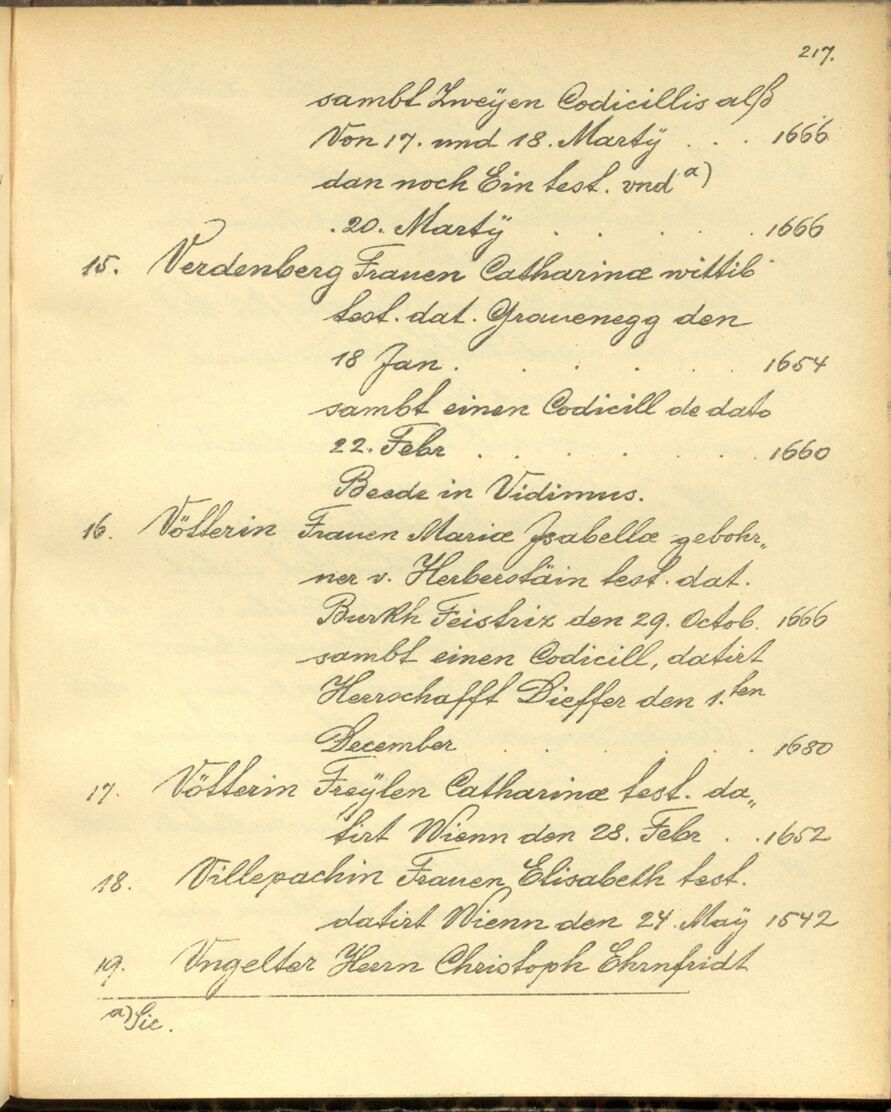 217.
sambt Zweÿen Codicillis alß
Von 17. und 18. Martÿ . . . 1666
dan noch Ein test. vnd a)
. 20. Martÿ . . . . . 1666
15. Verdenberg Frauen Catharinæ wittib
test. dat. Grauenegg den
18 Jan . . . . . . 1654
sambt einen Codicill de dato
22. Febr . . . . . . 1660
Beede in Vidimus.
16. Vötterin Frauen Mariæ Isabellæ gebohr„
ner v. Herberstäin test. dat.
Burkh Feistriz den 29. Octob. 1666
sambt einen Codicill, datirt
Herrschafft Dieffer den 1.ten
December . . . . . . 1680
17. Vötterin Freÿlen Catharinæ test. da„
tirt Wienn den 28. Febr . . 1652
18. Villepachin Frauen Elisabeth test.
datirt Wienn den 24. Maÿ 1542
19. Vngelter Herrn Christoph Ehrnfridt
a) Sic.